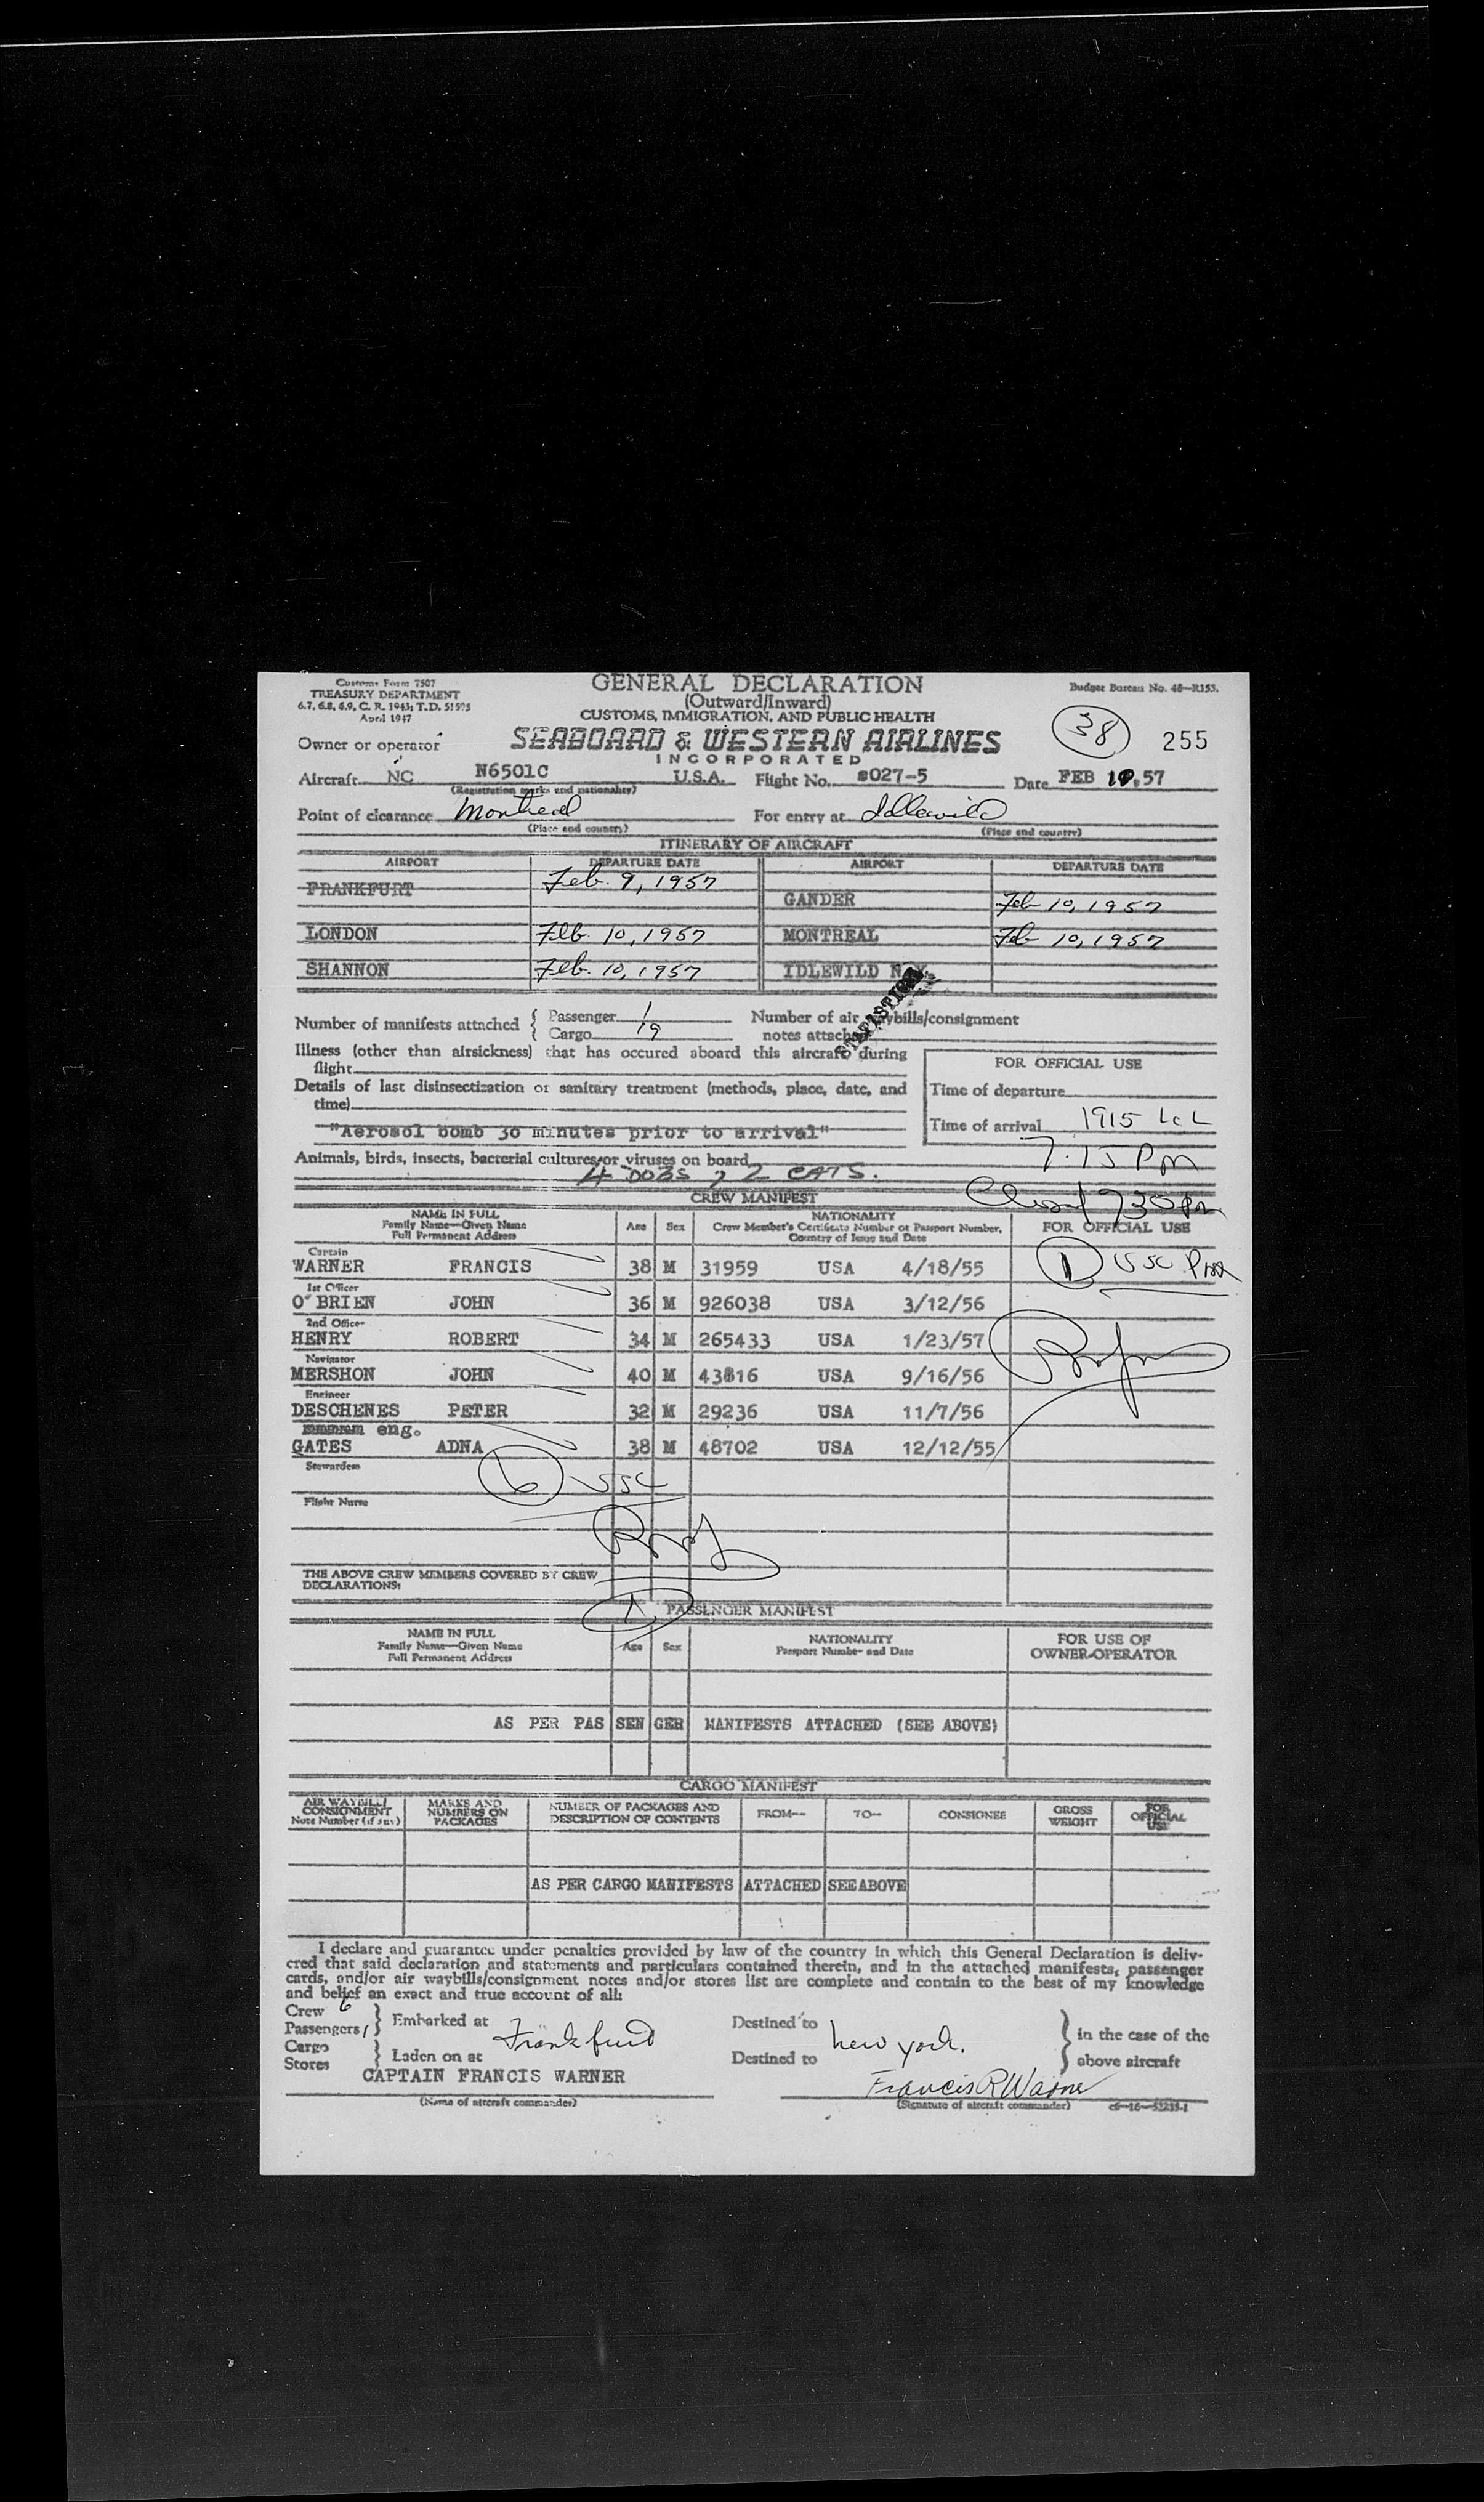 Customs Form 7507
TREASURY DEPARTMENT
6.7, 6.8, 6.9, C. R. 1943; T.D. 51595
April 1947
GENERAL DECLARATION
(Outward/Inward)
CUSTOMS, IMMIGRATION, AND PUBLIC HEALTH
Budget Bureau No. 48—R353.
38
255
Owner or operator
SEABOARD & WESTERN AIRLINES
INCORPORATED
Aircraft NC N6501C U.S.A. Flight No. S027-5 Date FEB 10, 57
(Registration marks and nationality)
Point of clearance Montreal For entry at Idlewild
(Place and country) (Place and country)
ITINERARY OF AIRCRAFT
AIRPORT DEPARTURE DATE AIRPORT DEPARTURE DATE
FRANKFURT Feb. 9, 1957 GANDER Feb 10, 1957
LONDON Feb. 10, 1957 MONTREAL Feb 10, 1957
SHANNON Feb. 10, 1957 IDLEWILD N.Y.
STATISTICS
Number of manifests attached { Passenger 1
Cargo 19
Number of air waybills/consignment
notes attached
Illness (other than airsickness) that has occured aboard this aircraft during
flight
Details of last disinsectization or sanitary treatment (methods, place, date, and
time)
"Aerosol bomb 30 minutes prior to arrival"
FOR OFFICIAL USE
Time of departure
Time of arrival 1915 LcL
7:15 Pm
Animals, birds, insects, bacterial cultures, or viruses on board
4 DOGS, 2 CATS.
730 Pm
CREW MANIFEST
NAME IN FULL
Family Name—Given Name
Full Permanent Address
Age Sex
NATIONALITY
Crew Member's Certificate Number or Passport Number,
Country of Issue and Date
FOR OFFICIAL USE
Captain
WARNER FRANCIS 38 M 31959 USA 4/18/55
1 USC
1st Officer
O'BRIEN JOHN 36 M 926038 USA 3/12/56
2nd Officer
HENRY ROBERT 34 M 265433 USA 1/23/57
Navigator
MERSHON JOHN 40 M 43816 USA 9/16/56
Engineer
DESCHENES PETER 32 M 29236 USA 11/7/56
eng.
GATES ADNA 38 M 48702 USA 12/12/55
Stewardess
6 USC
Flight Nurse
THE ABOVE CREW MEMBERS COVERED BY CREW
DECLARATIONS:
1
PASSENGER MANIFEST
NAME IN FULL
Family Name—Given Name
Full Permanent Address
Age Sex
NATIONALITY
Passport Number and Date
FOR USE OF
OWNER-OPERATOR
AS PER PAS SEN GER MANIFESTS ATTACHED (SEE ABOVE)
CARGO MANIFEST
AIR WAYBILL/
CONSIGNMENT
Note Number (if any)
MARKS AND
NUMBERS ON
PACKAGES
NUMBER OF PACKAGES AND
DESCRIPTION OF CONTENTS
FROM—
TO—
CONSIGNEE
GROSS
WEIGHT
FOR
OFFICIAL
USE
AS PER CARGO MANIFESTS ATTACHED SEE ABOVE
I declare and guarantee under penalties provided by law of the country in which this General Declaration is deliv-
ered that said declaration and statements and particulars contained therein, and in the attached manifests, passenger
cards, and/or air waybills/consignment notes and/or stores list are complete and contain to the best of my knowledge
and belief an exact and true account of all:
Crew 6
Passengers 1 } Embarked at Frankfurt Destined to New York. } in the case of the
Cargo
Stores } Laden on at Destined to above aircraft
CAPTAIN FRANCIS WARNER Francis R Warner
(Name of aircraft commander) (Signature of aircraft commander) c6—16—52235-1